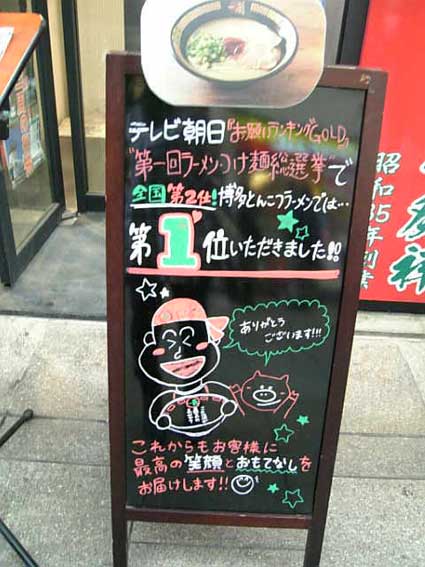 テレビ朝日『お願いランキングGOLD』
"第一回ラーメン・つけ麺総選挙"で
全国第2位!博多とんこつラーメンでは…
第1位いただきました!!
ありがとう
ございます!!!
これからもお客様に
最高の笑顔とおもてなしを
お届けします!!
昭和35年創業